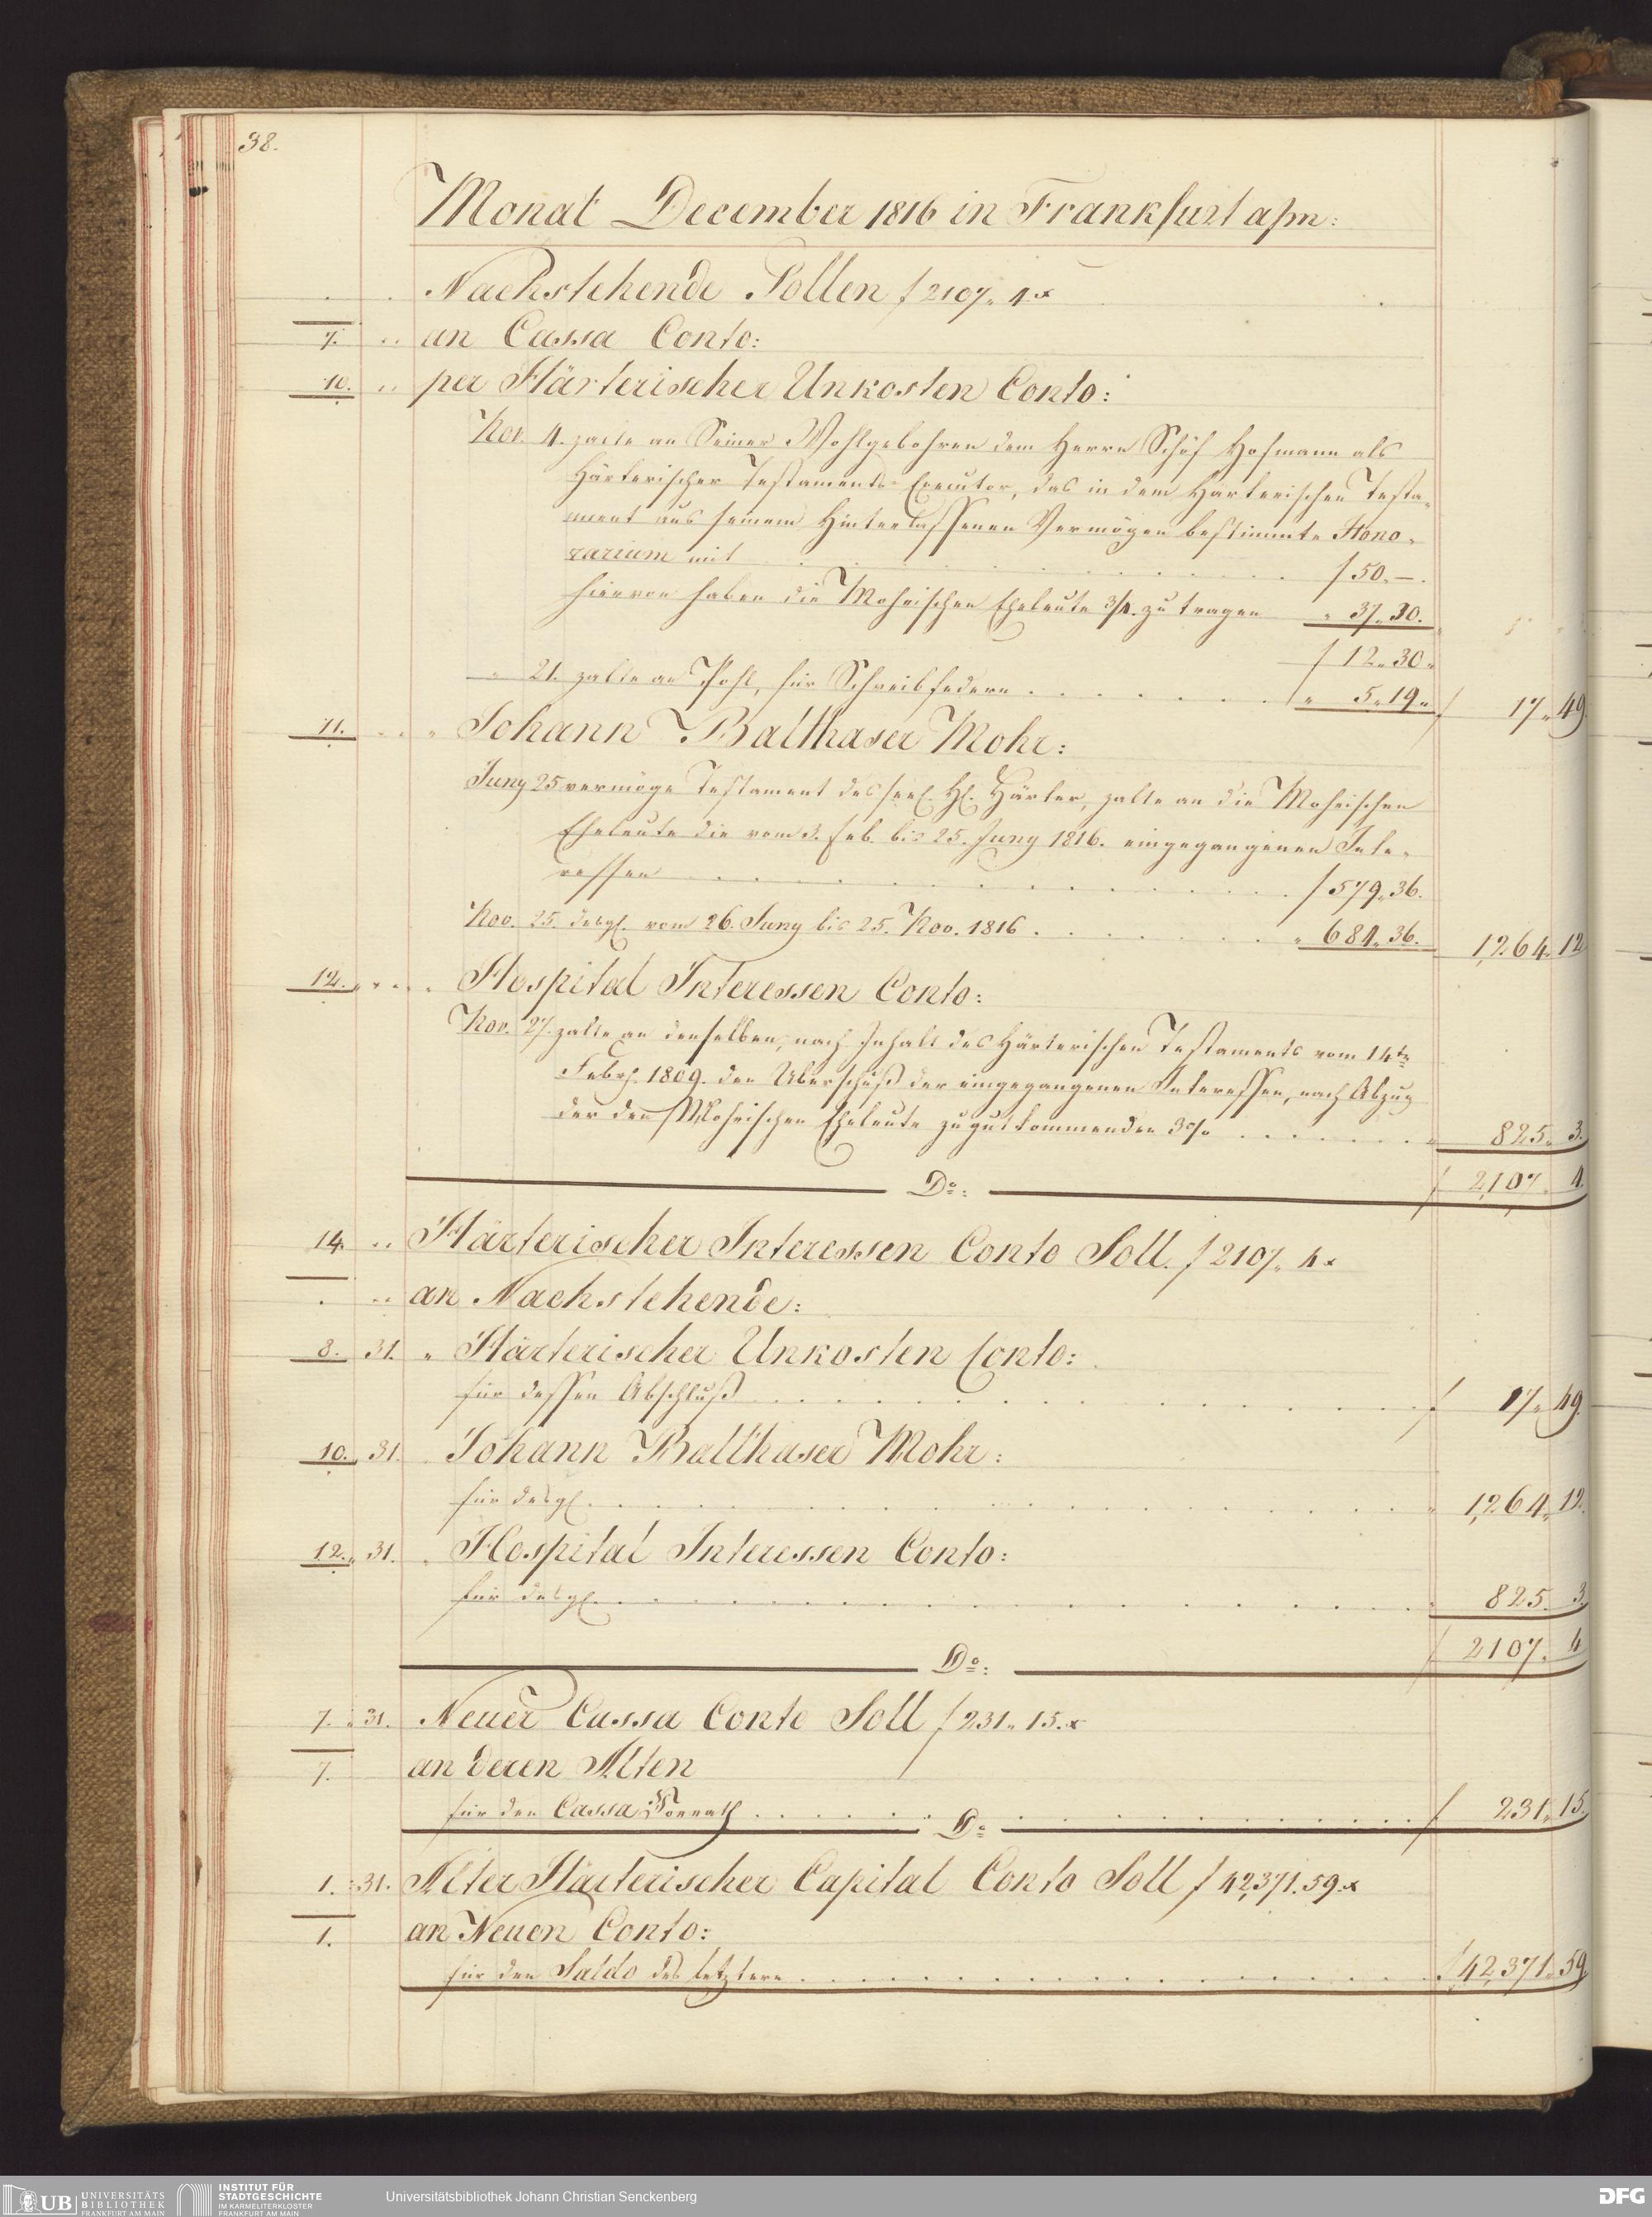 38.
Monat December 1816 in Frankfurt a/m:
Nachstehende Sollen f 2107. 4 x
7. an Cassa Conto:
10. per Härterischer Unkosten Conto:
Nov. 4. zalte an Seiner Wohlgebohren dem Herrn Schöf Hofmann als
Härterischer Testaments-Executor, das in dem Härterischen Testa-
ment aus seinem Hinterlassenen Vermögen bestimmte Hono-
rarium mit . . . f 50. —.
hiervon haben die Mohrischen Eheleute 3/4. zu tragen " 37. 30.
f 12. 30.
" 21. zalte an Pohl, für Schreibfedern . . . " 5. 19. f 17. 49.
11. " Johann Balthaser Mohr:
Juny 25 vermöge Testament des seel. H. Härter, zalte an die Mohrischen
Eheleute die vom 3. Feb. bis 25. Juny 1816. eingegangenen Inte-
ressen . . . f 579. 36.
Nov. 25. desgl. vom 26. Juny bis 25. Nov. 1816 . . . " 684. 36. 1,264. 12
12. " Hospital Interessen Conto:
Nov. 27. zalte an denselben, nach Inhalt des Härterischen Testaments vom 14ten
Febr. 1809. den Überschuß der eingegangenen Interessen, nach Abzug
der den Mohrischen Eheleute zugutkommenden 3% . . . " 825. 3.
Do: f 2,107. 4.
14. Härterischer Interessen Conto Soll. f 2107. 4 x
an Nachstehende:
8. 31. " Härterischer Unkosten Conto:
für dessen Abschluß . . . f 17. 49.
10. 31. Johann Balthaser Mohr:
für desgl. . . . " 1,264. 12.
12. 31. " Hospital Interessen Conto:
für desgl. . . . " 825. 3.
Do: f 2107. 4
7. 31. Neuer Cassa Conto Soll f 231. 15. x
7. an deren Alten
für den Cassa Vorrath . . . f 231. 15.
Do
1. 31. Alter Härterischer Capital Conto Soll f 42,371. 59. x
1. an Neuen Conto:
für den Saldo des letztern . . . f 42,371. 59
UB UNIVERSITÄTS
BIBLIOTHEK
FRANKFURT AM MAIN
INSTITUT FÜR
STADTGESCHICHTE
IM KARMELITERKLOSTER
FRANKFURT AM MAIN
Universitätsbibliothek Johann Christian Senckenberg
DFG